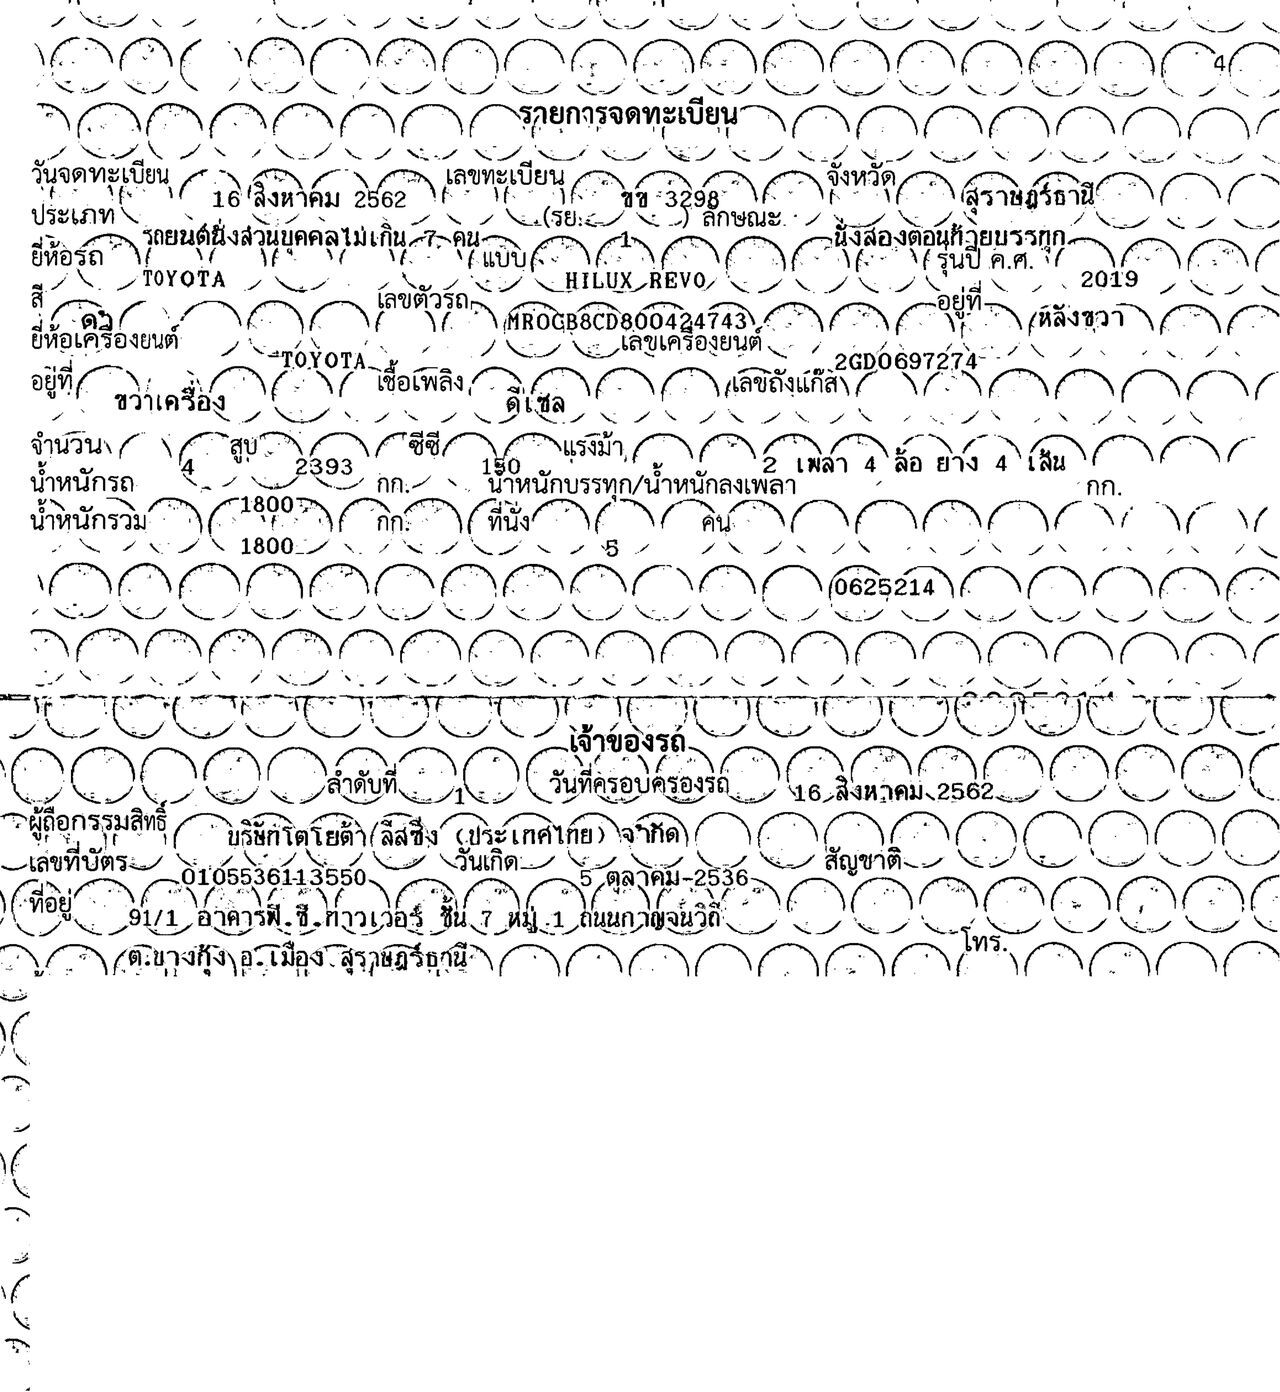 4
รายการจดทะเบียน
วันจดทะเบียน 16 สิงหาคม 2562 เลขทะเบียน ขข 3298 จังหวัด สุราษฎร์ธานี
ประเภท รถยนต์นั่งส่วนบุคคลไม่เกิน 7 คน (รย. 1 ) ลักษณะ นั่งสองตอนท้ายบรรทุก
ยี่ห้อรถ TOYOTA แบบ HILUX REVO รุ่นปี ค.ศ. 2019
สี ดำ เลขตัวรถ MR0CB8CD800424743 อยู่ที่ หลังขวา
ยี่ห้อเครื่องยนต์ TOYOTA เลขเครื่องยนต์ 2GD0697274
อยู่ที่ ขวาเครื่อง เชื้อเพลิง ดีเซล เลขถังแก๊ส
จำนวน 4 สูบ 2393 ซีซี 150 แรงม้า 2 เพลา 4 ล้อ ยาง 4 เส้น
น้ำหนักรถ 1800 กก. น้ำหนักบรรทุก/น้ำหนักลงเพลา กก.
น้ำหนักรวม 1800 กก. ที่นั่ง 5 คน
0625214
เจ้าของรถ
ลำดับที่ 1 วันที่ครอบครองรถ 16 สิงหาคม 2562
ผู้ถือกรรมสิทธิ์ บริษัทโตโยต้า ลีสซิ่ง (ประเทศไทย) จำกัด
เลขที่บัตร 0105536113550 วันเกิด 5 ตุลาคม 2536 สัญชาติ
ที่อยู่ 91/1 อาคารพี.ซี.ทาวเวอร์ ชั้น 7 หมู่ 1 ถนนกาญจนวิถี
ต.บางกุ้ง อ.เมือง สุราษฎร์ธานี โทร.